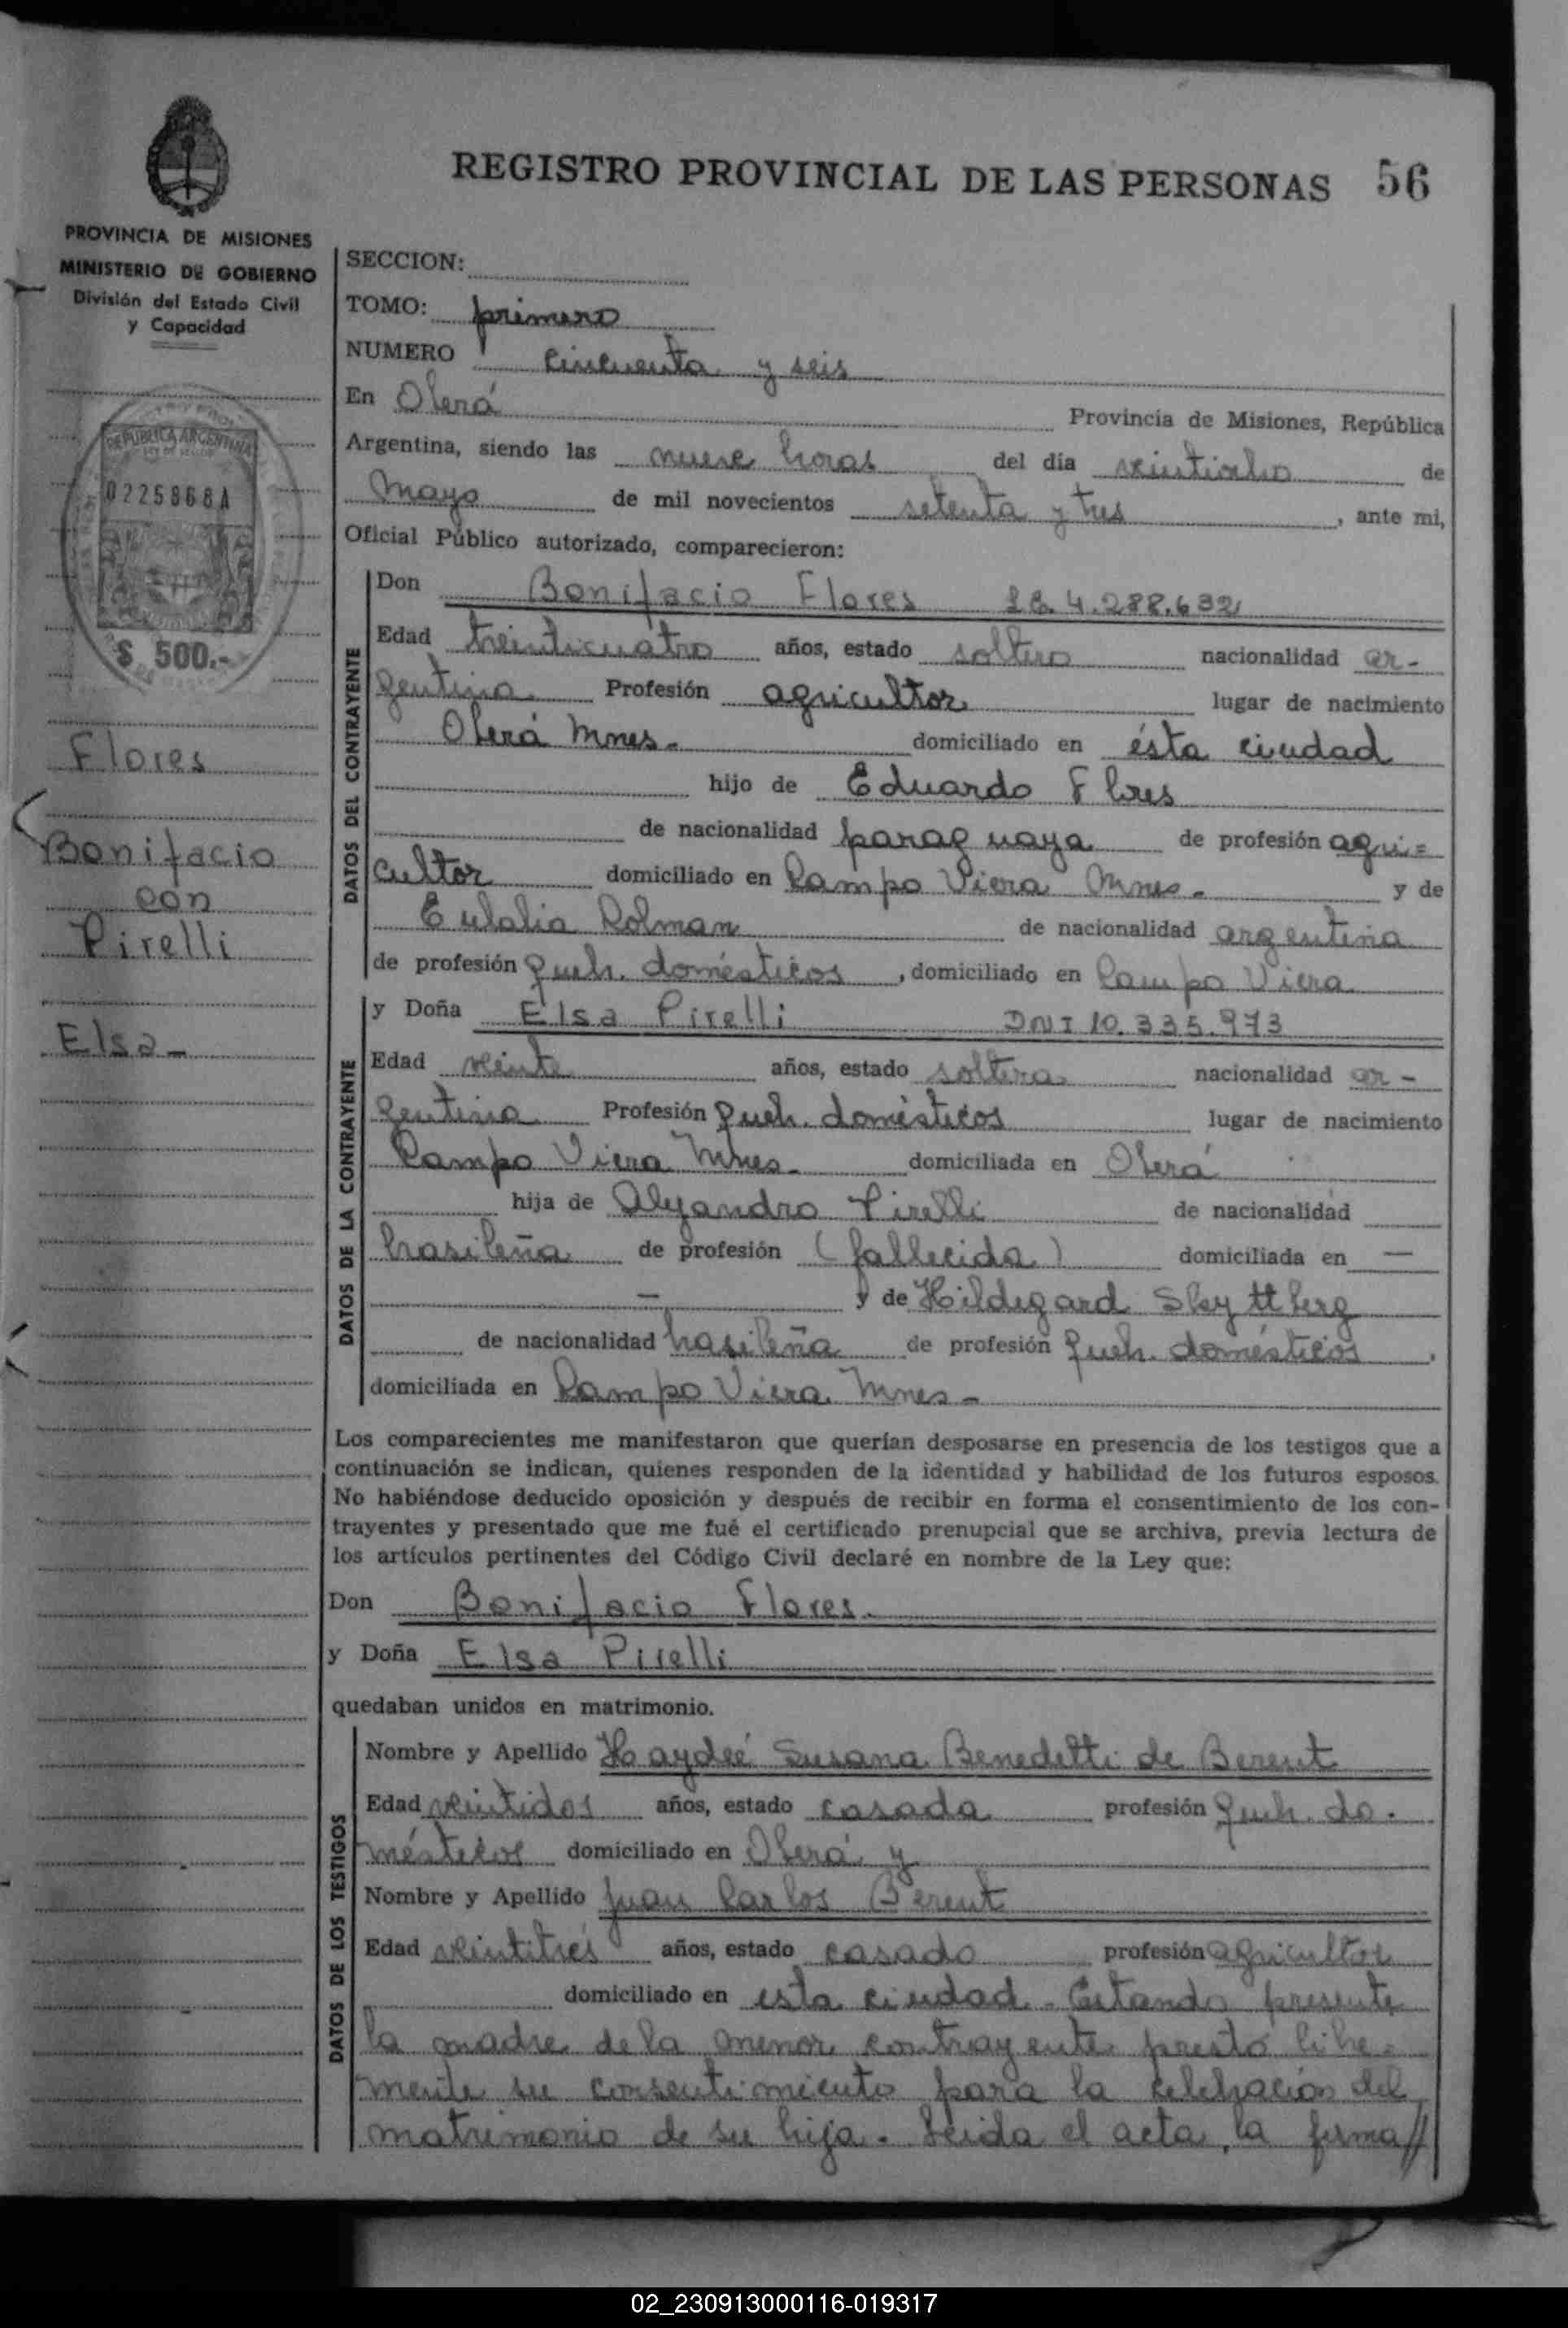 REGISTRO PROVINCIAL DE LAS PERSONAS 56
PROVINCIA DE MISIONES
MINISTERIO DE GOBIERNO
División del Estado Civil
y Capacidad
REPUBLICA ARGENTINA
0225868A
$ 500.-
Flores
Bonifacio
con
Pirelli
Elsa-
SECCION:
TOMO: primero
NUMERO cincuenta y seis
En Oberá Provincia de Misiones, República
Argentina, siendo las nueve horas del día veintiocho de
Mayo de mil novecientos setenta y tres, ante mi,
Oficial Público autorizado, comparecieron:
DATOS DEL CONTRAYENTE
Don Bonifacio Flores 4.288.632
Edad treinticuatro años, estado soltero nacionalidad ar-
gentina Profesión agricultor lugar de nacimiento
Oberá Mnes.- domiciliado en ésta ciudad
hijo de Eduardo Flores
de nacionalidad paraguaya de profesión agri=
cultor domiciliado en Campo Viera Mnes.- y de
Eulalia Rolman de nacionalidad argentina
de profesión queh. domésticos, domiciliado en Campo Viera
DATOS DE LA CONTRAYENTE
y Doña Elsa Pirelli DNI 10.335.973
Edad veinte años, estado soltera nacionalidad ar-
gentina Profesión queh. domésticos lugar de nacimiento
Campo Viera Mnes.- domiciliada en Oberá
hija de Alejandro Pirelli de nacionalidad
brasileña de profesión (fallecida) domiciliada en —
— y de Hildegard
de nacionalidad brasileña de profesión queh. domésticos,
domiciliada en Campo Viera Mnes-
Los comparecientes me manifestaron que querían desposarse en presencia de los testigos que a
continuación se indican, quienes responden de la identidad y habilidad de los futuros esposos.
No habiéndose deducido oposición y después de recibir en forma el consentimiento de los con-
trayentes y presentado que me fué el certificado prenupcial que se archiva, previa lectura de
los artículos pertinentes del Código Civil declaré en nombre de la Ley que:
Don Bonifacio Flores.
y Doña Elsa Pirelli
quedaban unidos en matrimonio.
DATOS DE LOS TESTIGOS
Nombre y Apellido Haydeé Susana Benedetti de Berent
Edad veintidos años, estado casada profesión queh. do.
mésticos domiciliado en Oberá y
Nombre y Apellido Juan Carlos Berent
Edad veintitrés años, estado casado profesión agricultor
domiciliado en esta ciudad. Estando presente
la madre de la menor contrayente prestó libre-
mente su consentimiento para la celebración del
matrimonio de su hija. Leida el acta, la firma//
02_230913000116-019317